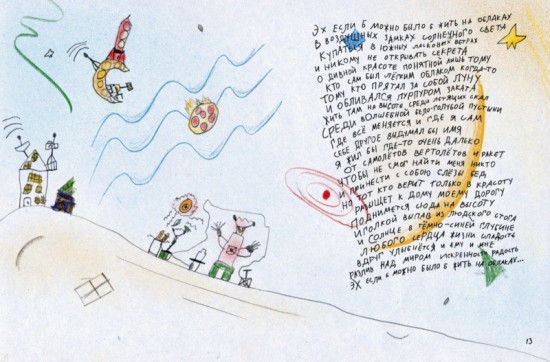 ЭХ ЕСЛИ Б МОЖНО БЫЛО Б ЖИТЬ НА ОБЛАКАХ
В ВОЗДУШНЫХ ЗАМКАХ СОЛНЕЧНОГО СВЕТА
КУПАТЬСЯ В ЮЖНЫХ ЛАСКОВЫХ ВЕТРАХ
И НИКОМУ НЕ ОТКРЫВАТЬ СЕКРЕТА
О ДИВНОЙ КРАСОТЕ ПОНЯТНОЙ ЛИШЬ ТОМУ
КТО САМ БЫЛ ЛЁГКИМ ОБЛАКОМ КОГДА-ТО
ТОМУ КТО ПРЯТАЛ ЗА СОБОЙ ЛУНУ
И ОБЛИВАЛСЯ ПУРПУРОМ ЗАКАТА
ЖИТЬ ТАМ НА ВЫСОТЕ СРЕДИ ЛЕТЯЩИХ СКАЛ
СРЕДИ ВОЛШЕБНОЙ БЕЛО-ГОЛУБОЙ ПУСТЫНИ
ГДЕ ВСЁ МЕНЯЕТСЯ И ГДЕ Я САМ
СЕБЕ ДРУГОЕ ВЫДУМАЛ БЫ ИМЯ
Я ЖИЛ БЫ ГДЕ-ТО ОЧЕНЬ ДАЛЕКО
ОТ САМОЛЁТОВ ВЕРТОЛЁТОВ И РАКЕТ
ЧТОБЫ НЕ СМОГ НАЙТИ МЕНЯ НИКТО
И ПРИНЕСТИ С СОБОЮ СЛЁЗЫ БЕД
НО ТОТ КТО ВЕРИТ ТОЛЬКО В КРАСОТУ
РАЗЫЩЕТ К ДОМУ МОЕМУ ДОРОГУ
ПОДНИМЕТСЯ СЮДА НА ВЫСОТУ
ИГОЛКОЙ ВЫПАВ ИЗ ЛЮДСКОГО СТОГА
И СОЛНЦЕ В ТЁМНО-СИНЕЙ ГЛУБИНЕ
ЛЮБОГО СЕРДЦА ЖИЗНИ СЛАДОСТЬ
ВДРУГ УЛЫБНЁТСЯ И ЕМУ И МНЕ
РАЗЛИВ НАД МИРОМ ИСКРЕННОСТЬ РАДОСТЬ
ЭХ ЕСЛИ Б МОЖНО БЫЛО Б ЖИТЬ НА ОБЛАКАХ...
13